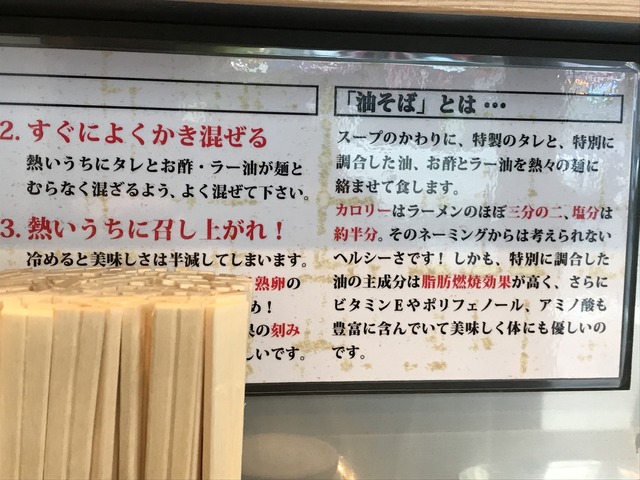 2. すぐによくかき混ぜる
熱いうちにタレとお酢・ラー油が麺と
むらなく混ざるよう、よく混ぜて下さい。
3. 熱いうちに召し上がれ！
冷めると美味しさは半減してしまいます。
熟卵の
め！
の刻み
しいです。
「油そば」とは…
スープのかわりに、特製のタレと、特別に
調合した油、お酢とラー油を熱々の麺に
絡ませて食します。
カロリーはラーメンのほぼ三分の二、塩分は
約半分。そのネーミングからは考えられない
ヘルシーさです！しかも、特別に調合した
油の主成分は脂肪燃焼効果が高く、さらに
ビタミンEやポリフェノール、アミノ酸も
豊富に含んでいて美味しく体にも優しいの
です。